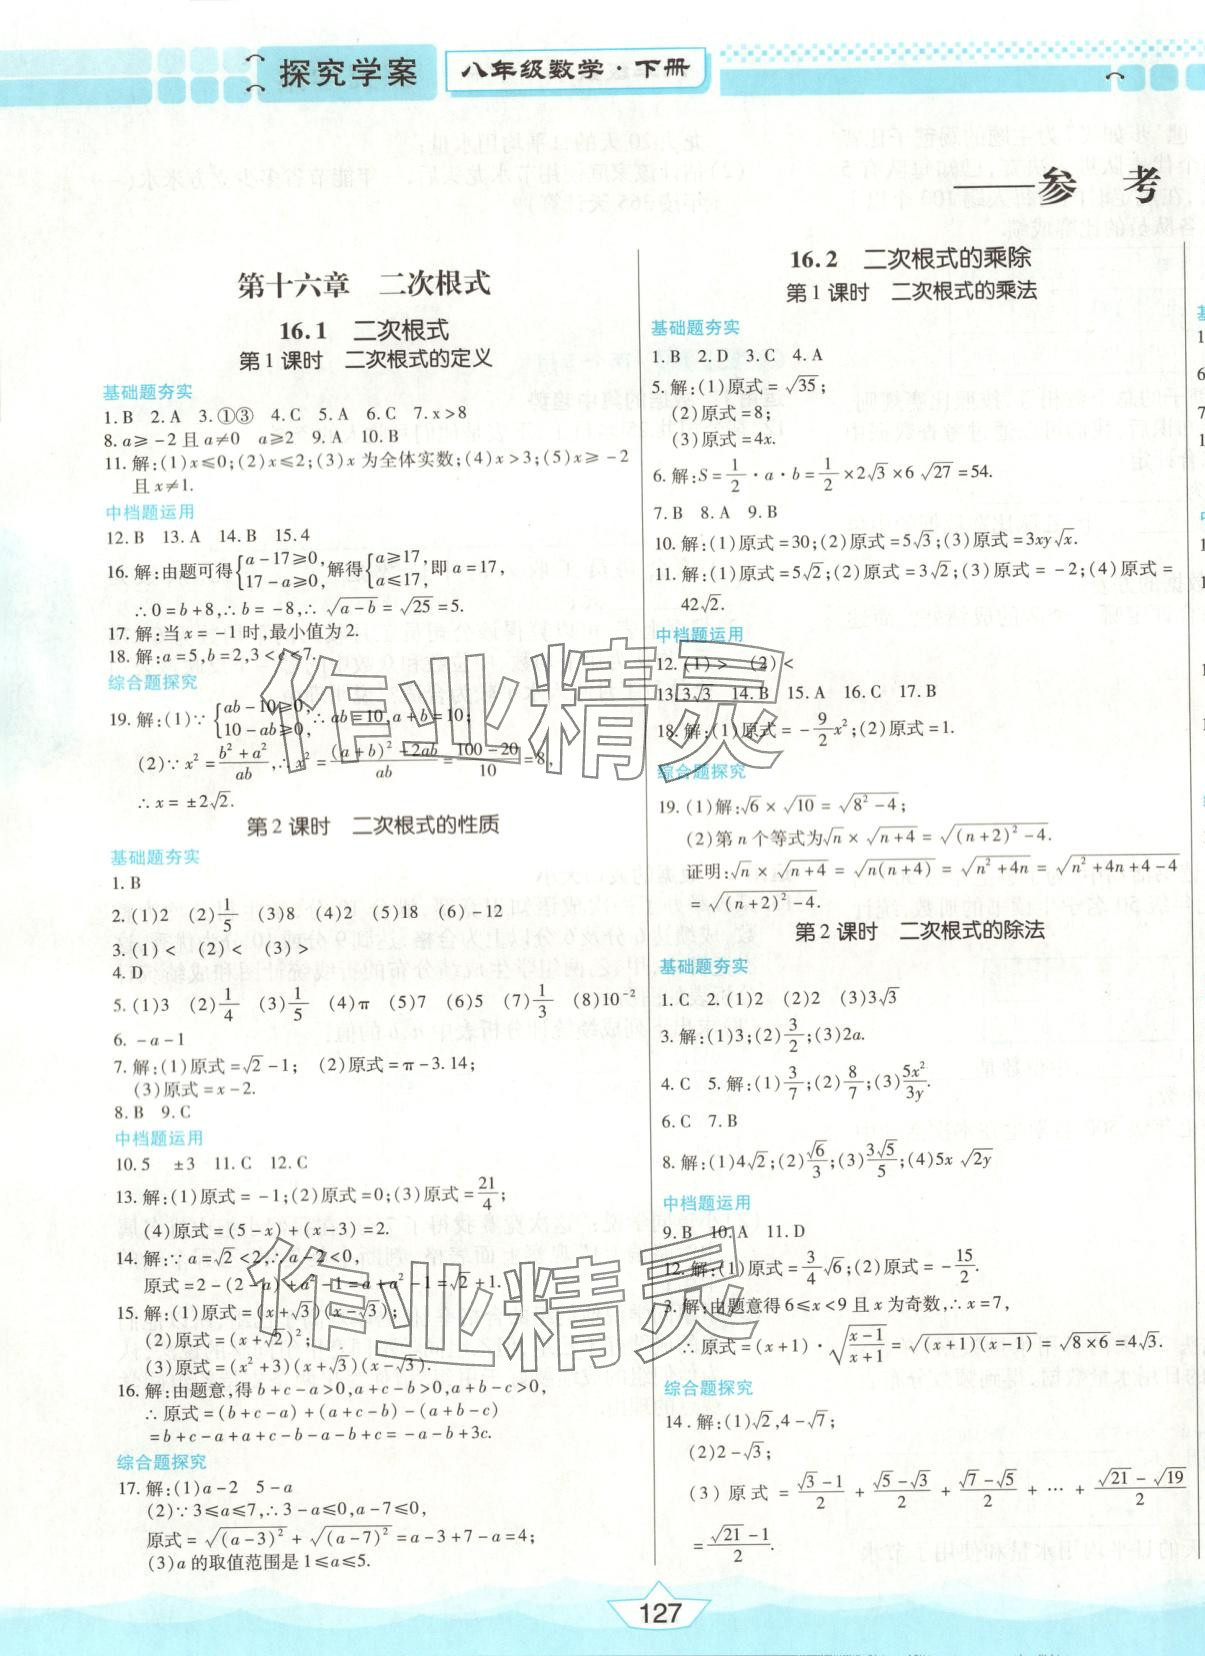 探究学案
八年级数学·下册
——参 考
第十六章 二次根式
16.1 二次根式
第1课时 二次根式的定义
基础题夯实
1.B 2.A 3.①③ 4.C 5.A 6.C 7.x>8
8.a≥-2且a≠0 a≥2 9.A 10.B
11.解:(1)x≤0;(2)x≤2;(3)x为全体实数;(4)x>3;(5)x≥-2
且x≠1.
中档题运用
12.B 13.A 14.B 15.4
16.解:由题可得{a-17≥0, 17-a≥0,解得{a≥17, a≤17,即a=17,
∴0=b+8,∴b=-8,∴√(a-b)=√25=5.
17.解:当x=-1时,最小值为2.
18.解:a=5,b=2,3<c<7.
综合题探究
19.解:(1)∵{ab-10≥0, 10-ab≥0,∴ab=10,a+b=10;
(2)∵x²=(b²+a²)/ab,∴x²=((a+b)²-2ab)/ab=(100-20)/10=8,
∴x=±2√2.
第2课时 二次根式的性质
基础题夯实
1.B
2.(1)2 (2)1/5 (3)8 (4)2 (5)18 (6)-12
3.(1)< (2)< (3)>
4.D
5.(1)3 (2)1/4 (3)1/5 (4)π (5)7 (6)5 (7)1/3 (8)10⁻²
6.-a-1
7.解:(1)原式=√2-1; (2)原式=π-3.14;
(3)原式=x-2.
8.B 9.C
中档题运用
10.5 ±3 11.C 12.C
13.解:(1)原式=-1;(2)原式=0;(3)原式=21/4;
(4)原式=(5-x)+(x-3)=2.
14.解:∵a=√2<2,∴a-2<0,
原式=2-(2-a)+a²-1=a+a²-1=√2+1.
15.解:(1)原式=(x+√3)(x-√3);
(2)原式=(x+√2)²;
(3)原式=(x²+3)(x+√3)(x-√3).
16.解:由题意,得b+c-a>0,a+c-b>0,a+b-c>0,
∴原式=(b+c-a)+(a+c-b)-(a+b-c)
=b+c-a+a+c-b-a-b+c=-a-b+3c.
综合题探究
17.解:(1)a-2 5-a
(2)∵3≤a≤7,∴3-a≤0,a-7≤0,
原式=√((a-3)²)+√((a-7)²)=a-3+7-a=4;
(3)a的取值范围是1≤a≤5.
16.2 二次根式的乘除
第1课时 二次根式的乘法
基础题夯实
1.B 2.D 3.C 4.A
5.解:(1)原式=√35;
(2)原式=8;
(3)原式=4x.
6.解:S=1/2·a·b=1/2×2√3×6√27=54.
7.B 8.A 9.B
10.解:(1)原式=30;(2)原式=5√3;(3)原式=3xy√x.
11.解:(1)原式=5√2;(2)原式=3√2;(3)原式=-2;(4)原式=
42√2.
中档题运用
12.(1)> (2)<
13.3√3 14.B 15.A 16.C 17.B
18.解:(1)原式=-9/2x²;(2)原式=1.
综合题探究
19.(1)解:√6×√10=√(8²-4);
(2)第n个等式为√n×√(n+4)=√((n+2)²-4).
证明:√n×√(n+4)=√(n(n+4))=√(n²+4n)=√(n²+4n+4-4)
=√((n+2)²-4).
第2课时 二次根式的除法
基础题夯实
1.C 2.(1)2 (2)2 (3)3√3
3.解:(1)3;(2)3/2;(3)2a.
4.C 5.解:(1)3/7;(2)8/7;(3)5x²/3y.
6.C 7.B
8.解:(1)4√2;(2)√6/3;(3)3√5/5;(4)5x√2y
中档题运用
9.B 10.A 11.D
12.解:(1)原式=3/4√6;(2)原式=-15/2.
3.解:由题意得6≤x<9且x为奇数,∴x=7,
∴原式=(x+1)·√((x-1)/(x+1))=√((x+1)(x-1))=√(8×6)=4√3.
综合题探究
14.解:(1)√2,4-√7;
(2)2-√3;
(3)原式=(√3-1)/2+(√5-√3)/2+(√7-√5)/2+…+(√21-√19)/2
=(√21-1)/2.
作业精灵
作业精灵
127